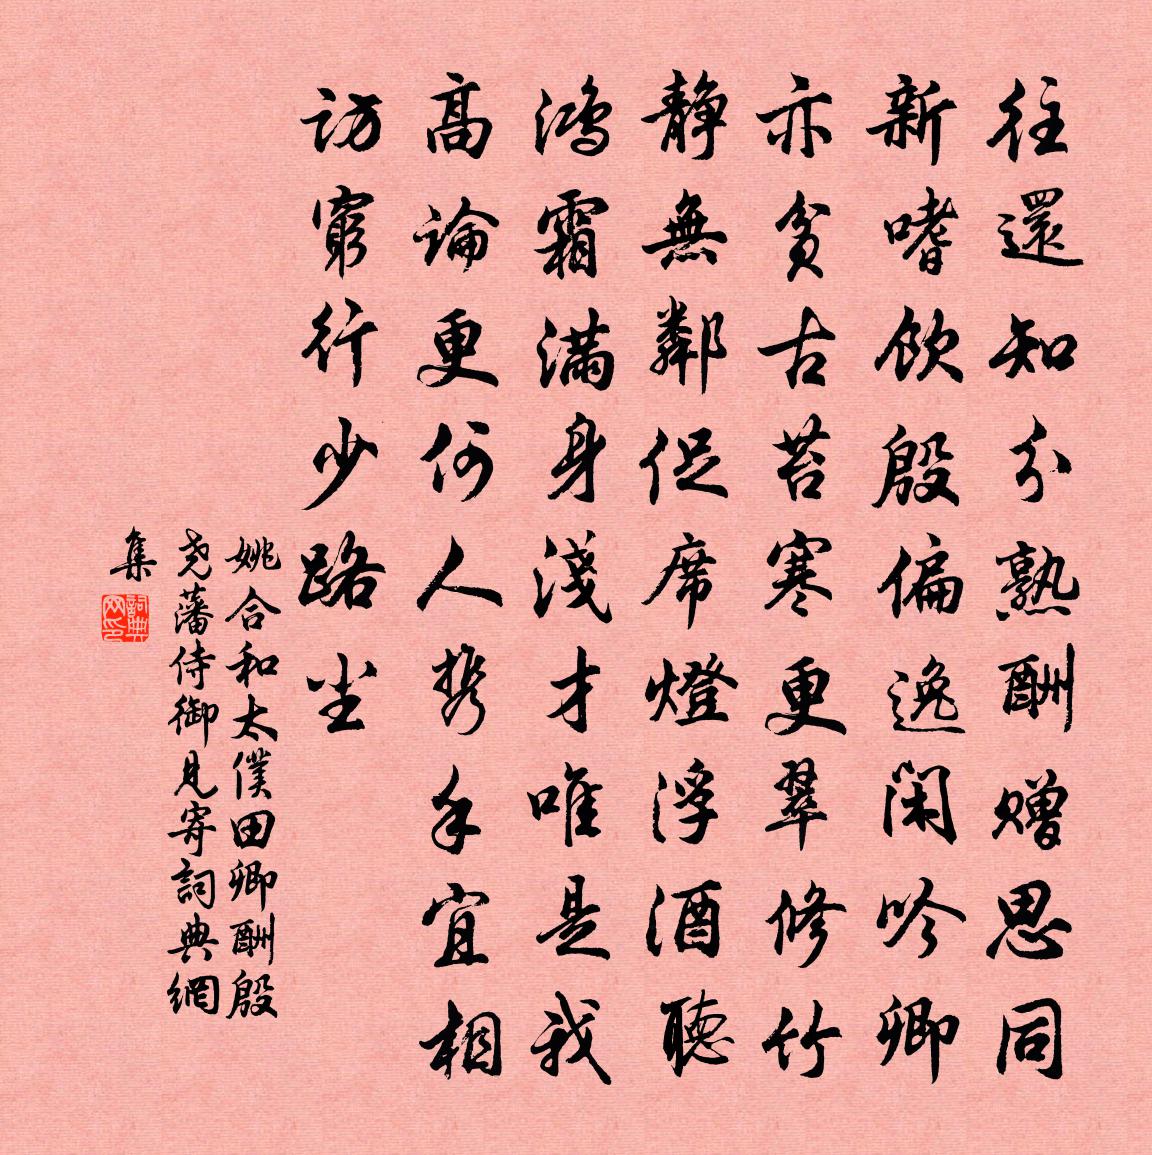 往還知分熟酬贈思同
新嗜飲殷偏逸閑吟卿
亦貧古苔寒更翠修竹
靜無鄰促席燈浮酒聽
鴻霜滿身淺才唯是我
高論更何人攜手宜相
訪窮行少路塵
姚合和太僕田卿酬殷
堯藩侍御見寄詞典網
集
詞典
网印